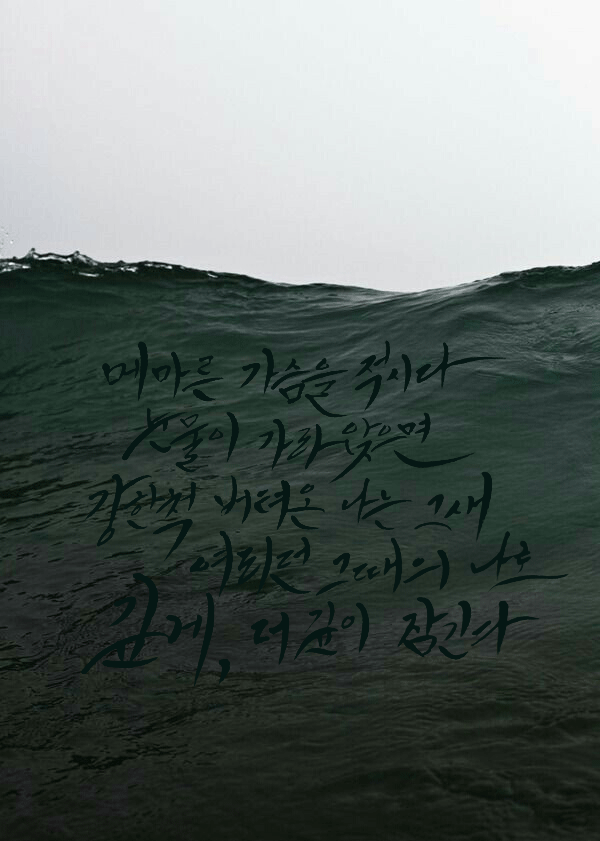 메마른 가슴을 적시다
눈물이 가라앉으면
강한척 버텨온 나는 그새
여리던 그때의 나로
깊게, 더 깊이 잠긴다